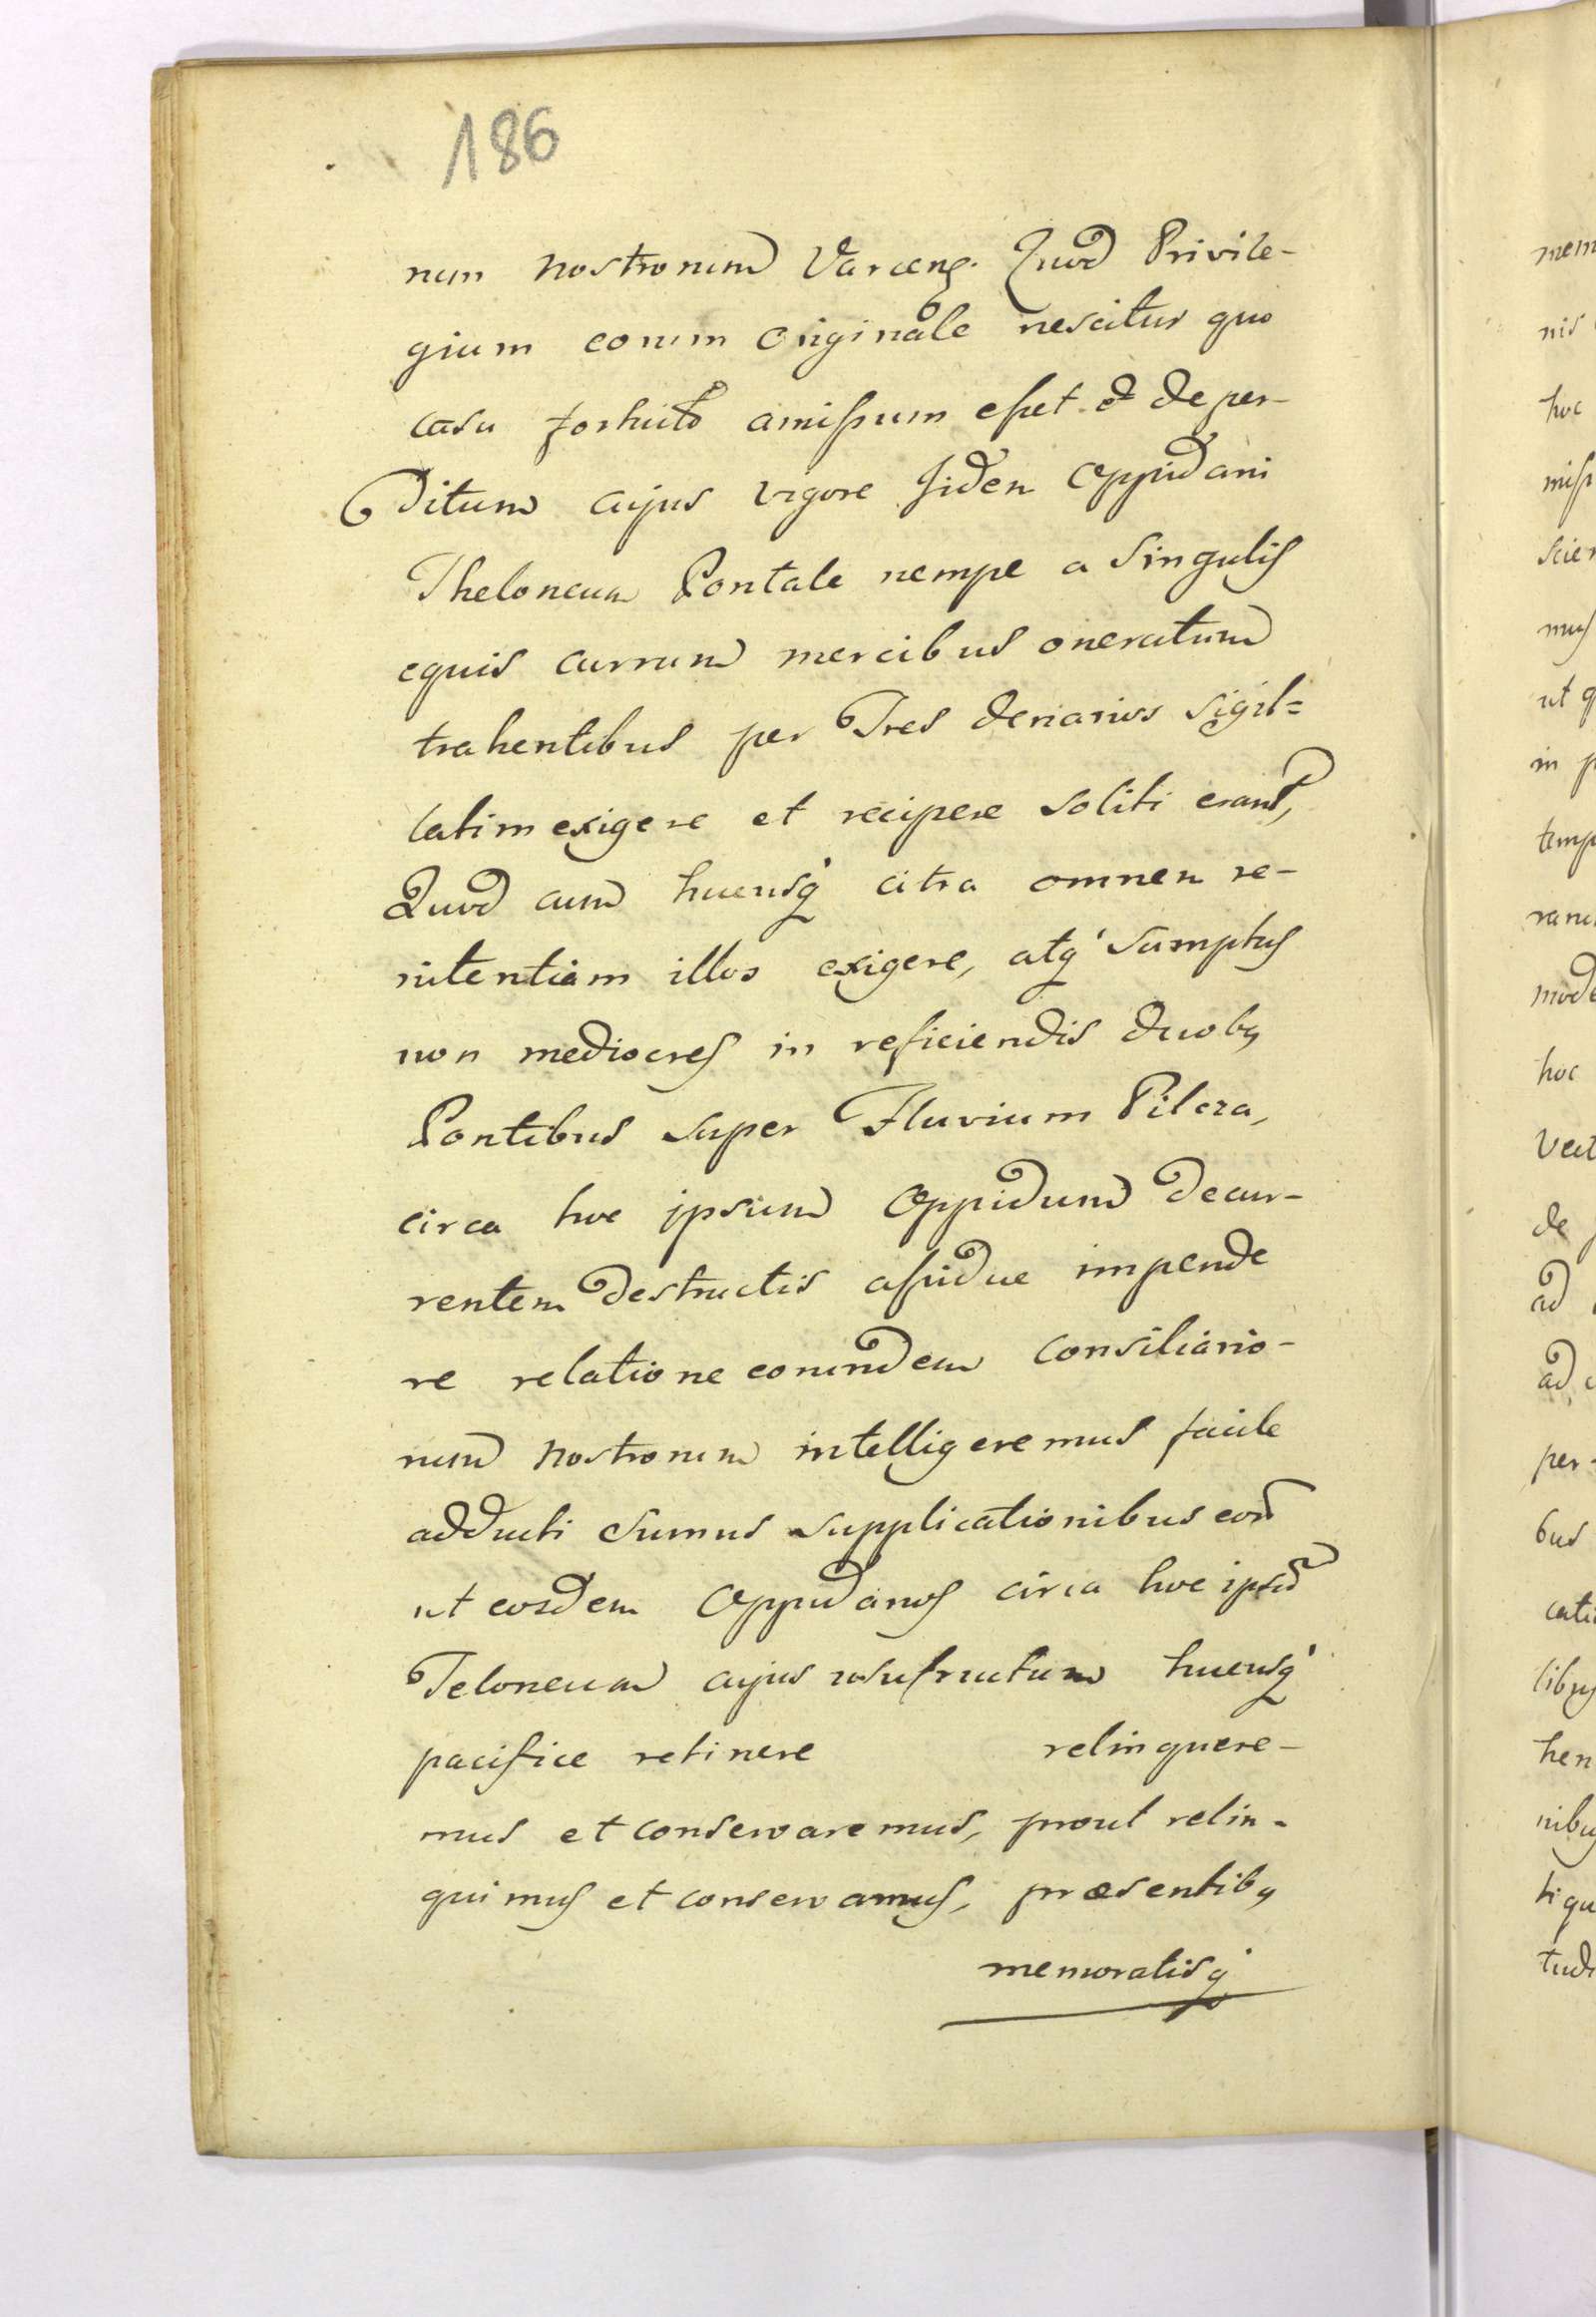 186
rum nostrorum Varceng. Quod Privile-
gium eorum originale nescitur quo
casu fortuito amissum esset et deper-
ditum cujus vigore Jidem Oppidani
Theloneum Pontale nempe a Singulis
equis currum mercibus oneratum
trahentibus per Tres denarios sigil=
latim exigere et recipere soliti erant,
Quod cum hucusq' citra omnem re-
nitentiam illos exigere, atq' sumptus
non mediocres in reficiendis duobq
Pontibus super Fluvium Pilcza,
circa hoc ipsum Oppidum decur-
rentem destructis assidue impende
re relatione eorundem Consiliario-
rum nostrorum intelligeremus facile
adducti sumus supplicationibus eor̃
ut eosdem Oppidanos circa hoc ipsũ
Teloneum cujus usufructum hucusq'
pacifice retinere relinquere-
mus et conservaremus, prout relin-
quimus et conservamus, praesentibq
memoratisq'
mem
nis
hoc
miss
scien
mus
ut q
in p
temp
mode
hoc
de
ad
ad
per-
bus
hen